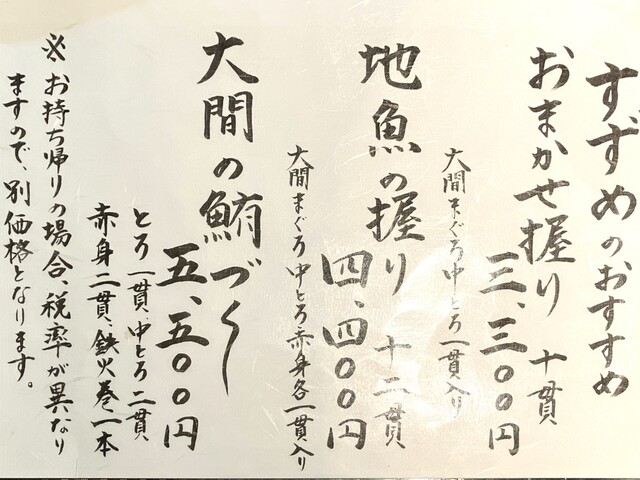 すずめのおすすめ
おまかせ握り 十貫
三、三〇〇円
大間まぐろ中とろ一貫入り
地魚の握り 十二貫
四、四〇〇円
大間まぐろ中とろ赤身各一貫入り
大間の鮪づくし
五、五〇〇円
とろ一貫、中とろ二貫
赤身二貫、鉄火巻一本
※お持ち帰りの場合、税率が異なり
ますので、別価格となります。